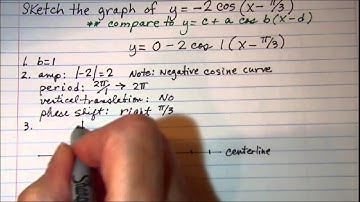 Sketch the graph of y = -2 cos (x - π/3)
** compare to y = c + a cos b(x-d)
y = 0 - 2 cos 1 (x - π/3)
1. b=1
2. amp: |-2| = 2 Note: Negative cosine curve
period: 2π/1 → 2π
vertical translation: No
phase shift: right π/3
3.
centerline